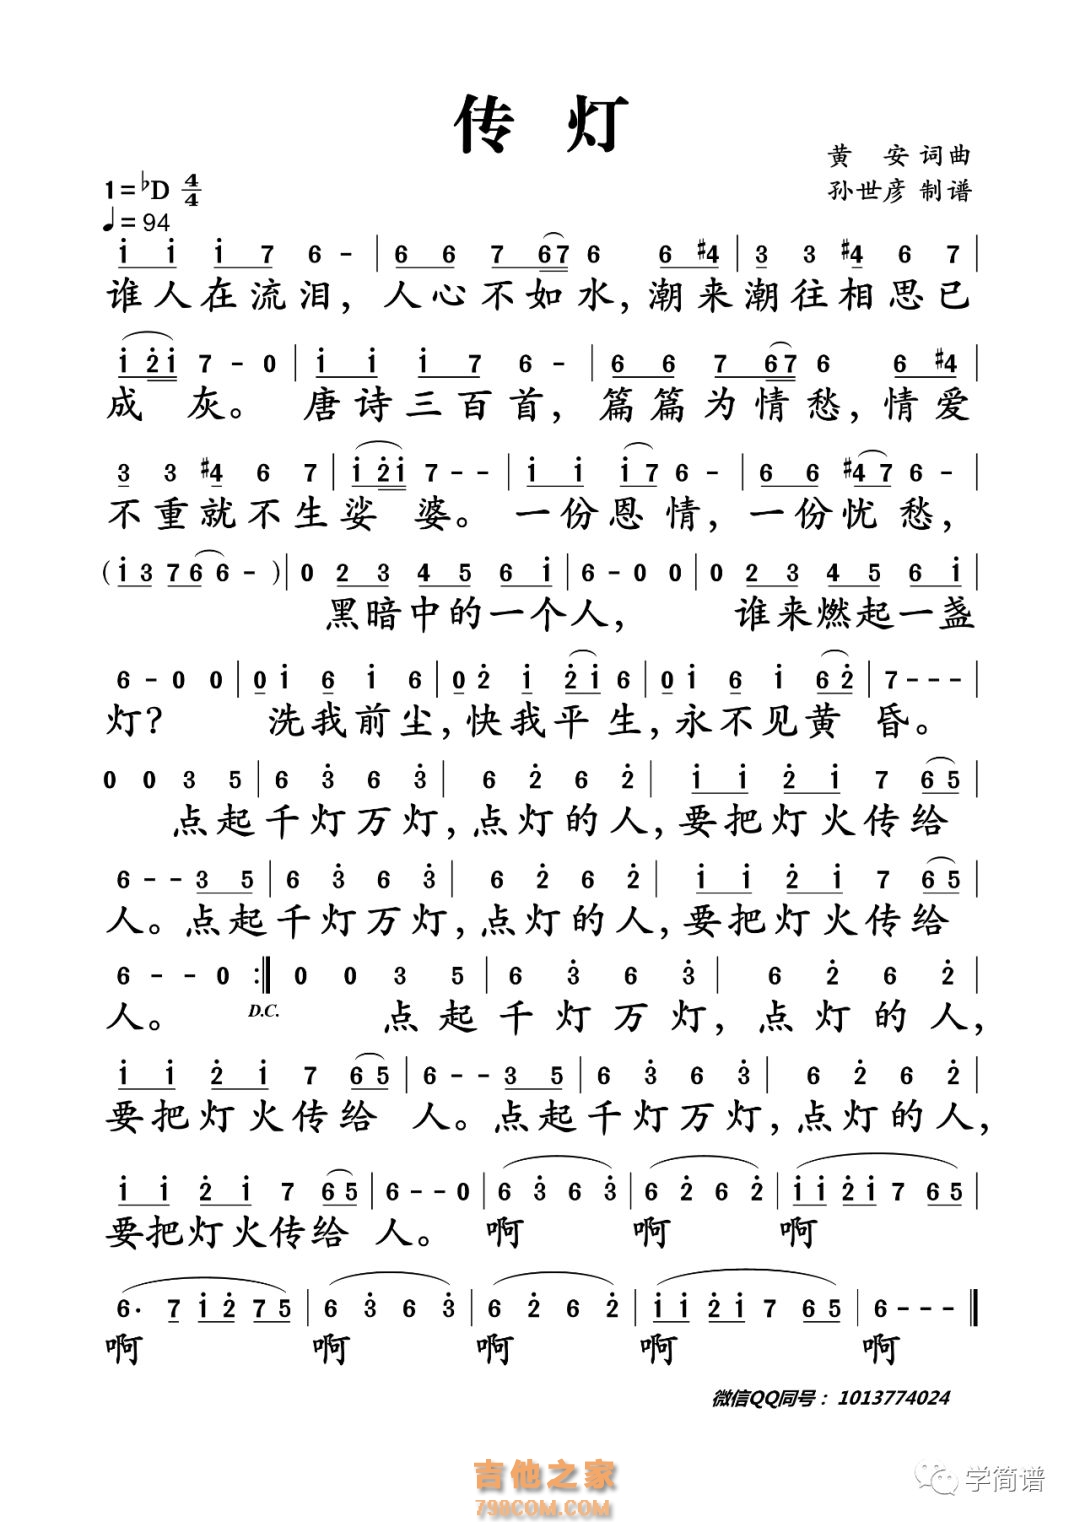 传 灯
黄 安 词曲
1=♭D 4/4
孙世彦 制谱
♩=94
i i i 7 6 - | 6 6 7 67 6 6 #4 | 3 3 #4 6 7 |
谁人在流泪，人心不如水，潮来潮往相思已
i 2 i 7 - 0 | i i i 7 6 - | 6 6 7 67 6 6 #4 |
成 灰。 唐诗三百首，篇篇为情愁，情爱
3 3 #4 6 7 | i 2 i 7 - - | i i i 7 6 - | 6 6 #4 7 6 - |
不重就不生娑 婆。一份恩情，一份忧愁，
( i 3 7 6 6 - ) | 0 2 3 4 5 6 i | 6 - 0 0 | 0 2 3 4 5 6 i |
黑暗中的一个人， 谁来燃起一盏
6 - 0 0 | 0 i 6 i 6 | 0 2 i 2 i 6 | 0 i 6 i 6 2 | 7 - - - |
灯？ 洗我前尘，快我平生，永不见黄 昏。
0 0 3 5 | 6 3 6 3 | 6 2 6 2 | i i 2 i 7 6 5 |
点起千灯万灯，点灯的人，要把灯火传给
6 - - 3 5 | 6 3 6 3 | 6 2 6 2 | i i 2 i 7 6 5 |
人。点起千灯万灯，点灯的人，要把灯火传给
6 - - 0 :| 0 0 3 5 | 6 3 6 3 | 6 2 6 2 |
人。 D.C. 点起千灯万灯，点灯的人，
i i 2 i 7 6 5 | 6 - - 3 5 | 6 3 6 3 | 6 2 6 2 |
要把灯火传给 人。点起千灯万灯，点灯的人，
i i 2 i 7 6 5 | 6 - - 0 | 6 3 6 3 | 6 2 6 2 | i i 2 i 7 6 5 |
要把灯火传给 人。 啊 啊 啊
6· 7 i 2 7 5 | 6 3 6 3 | 6 2 6 2 | i i 2 i 7 6 5 | 6 - - - ‖
啊 啊 啊 啊 啊
微信QQ同号：1013774024
吉他之家
798COM.COM
学简谱